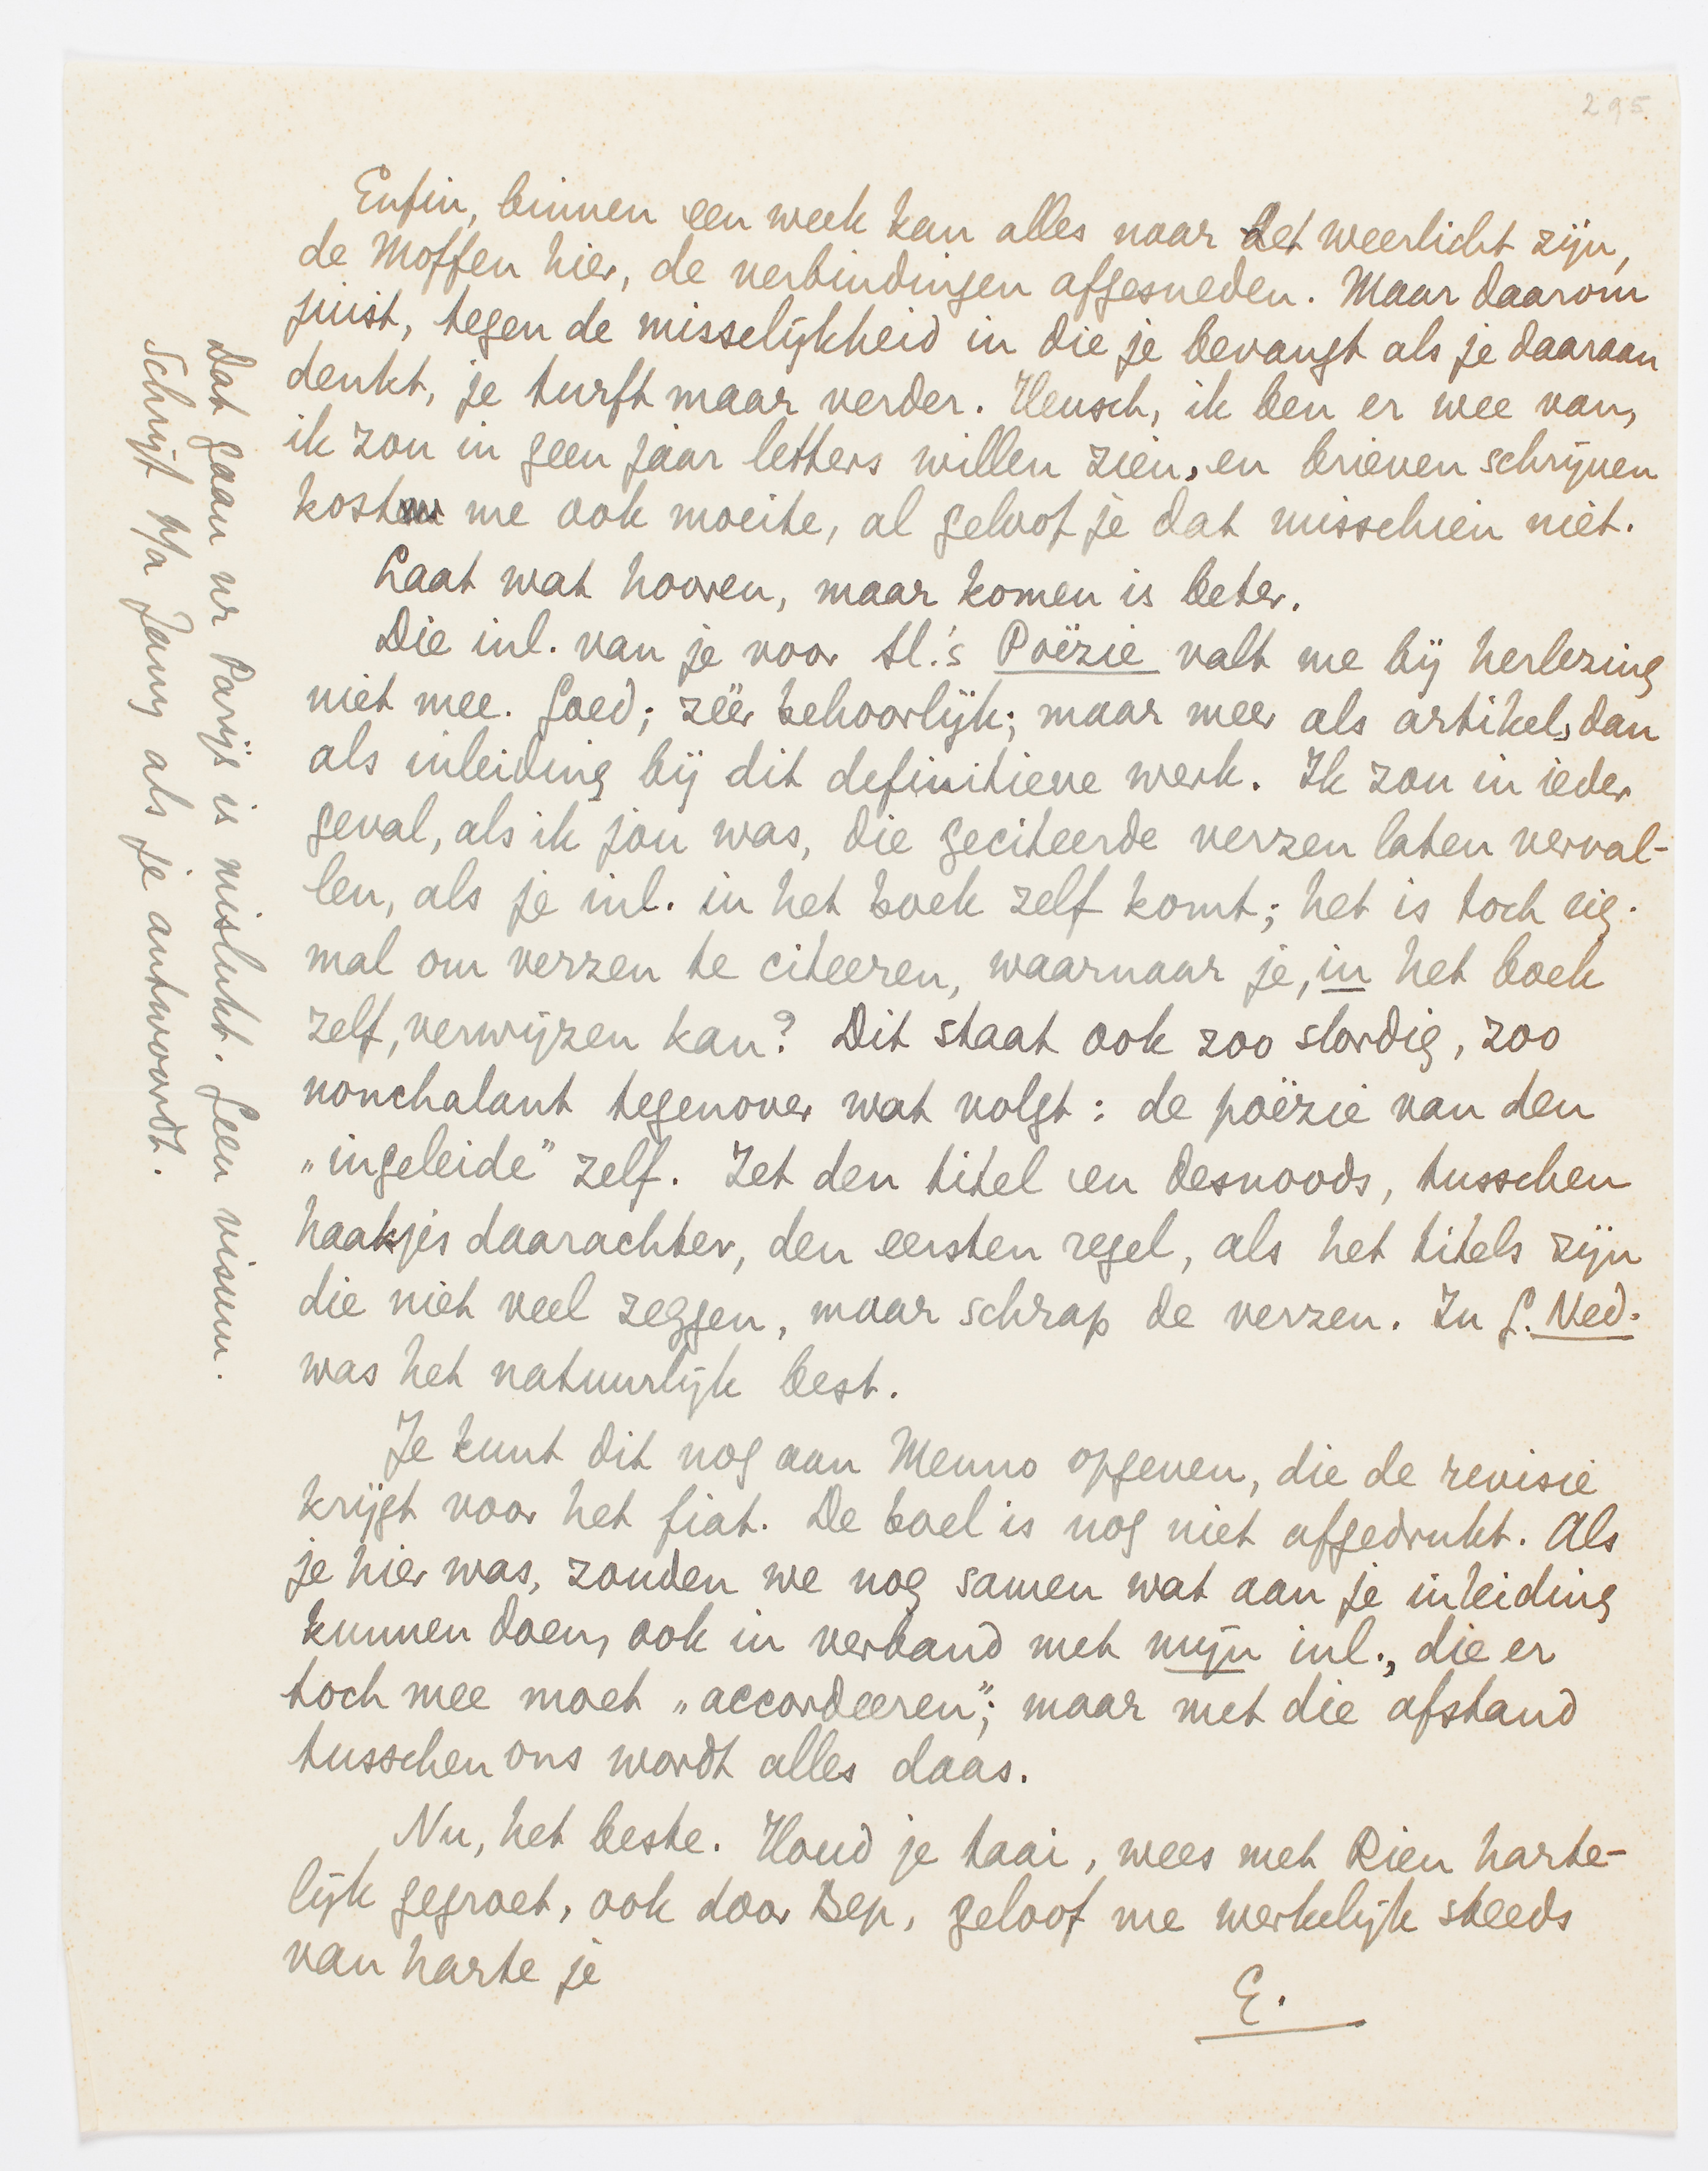 295
Enfin, binnen een week kan alles naar het weerlicht zijn,
de Moffen hier, de verbindingen afgesneden. Maar daarom
juist, tegen de misselijkheid in die je bevangt als je daaraan
denkt, je turft maar verder. Heusch, ik ben er wee van,
ik zou in geen jaar letters willen zien, en brieven schrijven
kost me ook moeite, al geloof je dat misschien niet.
Laat wat hooren, maar komen is beter.
Die inl. van je voor Sl.'s Poëzie valt me bij herlezing
niet mee. Goed; zéér behoorlijk; maar meer als artikel, dan
als inleiding bij dit definitieve werk. Ik zou in ieder
geval, als ik jou was, die geciteerde verzen laten verval-
len, als je inl. in het boek zelf komt; het is toch zig.
mal om verzen te citeeren, waarnaar je, in het boek
zelf, verwijzen kan? Dit staat ook zoo slordig, zoo
nonchalant tegenover wat volgt: de poëzie van den
„ingeleide” zelf. Zet den titel en desnoods, tusschen
haakjes daarachter, den eersten regel, als het titels zijn
die niet veel zeggen, maar schrap de verzen. In G. Ned.
was het natuurlijk best.
Je kunt dit nog aan Menno opgeven, die de revisie
krijgt voor het fiat. De boel is nog niet afgedrukt. Als
je hier was, zouden we nog samen wat aan je inleiding
kunnen doen, ook in verband met mijn inl., die er
toch mee moet „accordeeren”; maar met die afstand
tusschen ons wordt alles daas.
Nu, het beste. Houd je taai, wees met Rien harte-
lijk gegroet, ook door Bep, geloof me werkelijk steeds
van harte je
E.
Dat gaan nr Parijs is mislukt. Geen visum.
Schrijf p/a Jany als je antwoordt.